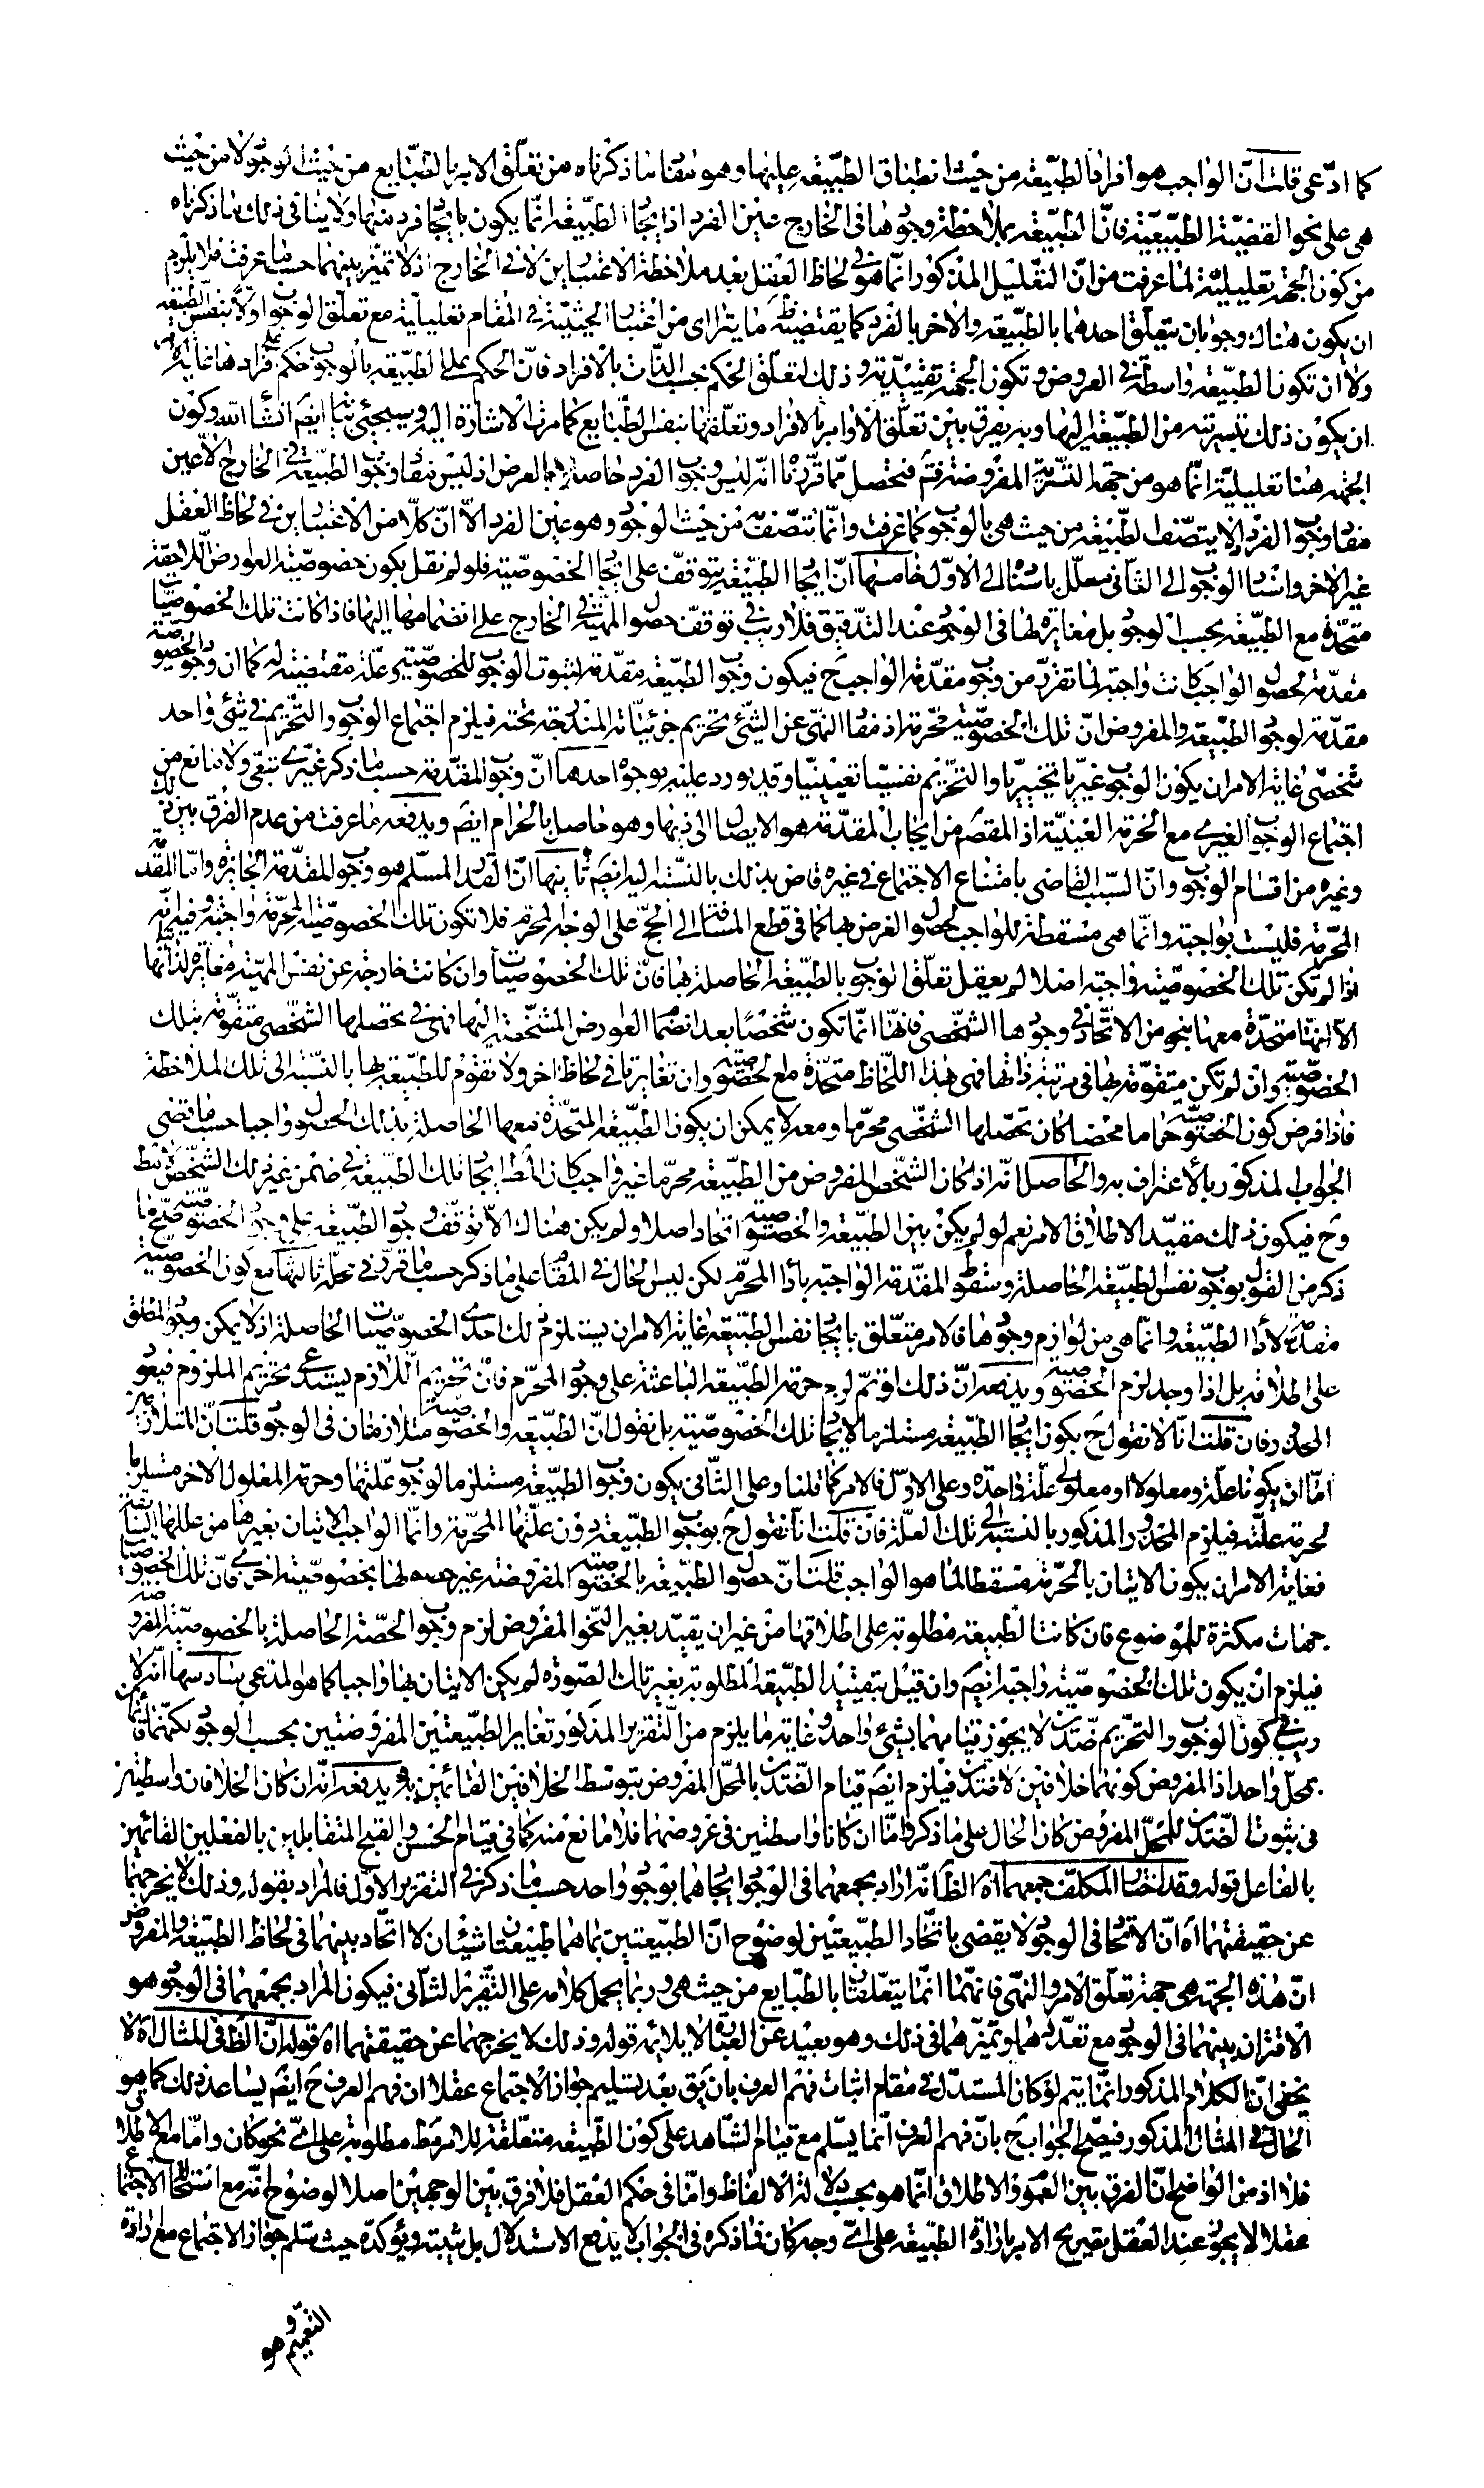 كما ادّعى قلت انّ الواجب هو افراد الطبيعة من حيث انطباق الطبيعة عليها وهو مفاد ما ذكرناه من تعلّق الامر بالطبايع من حيث الوجود لا من حيث
هى على نحو القضيّة الطبيعيّة فانّ الطبيعة بملاحظة وجودها فى الخارج عين الفرد اذ ايجاد الطبيعة انّما يكون بايجاد فرد منها ولا ينافى ذلك ما ذكرناه
من كون الجهة تعليليّة لما عرفت من انّ التعليل المذكور انّما هو فى لحاظ العقل بعد ملاحظة الاعتبارين لا فى الخارج اذ لا تميّز بينهما حسبما عرفت فلا يلزم
ان يكون هناك وجوبان يتعلّق احدهما بالطبيعة والاخر بالفرد كما يقتضيه ما يترااى من اعتبار الحيثيّة فى المقام تعليليّة مع تعلّق الوجوب اوّلا بنفس الطبيعة
ولا ان تكون الطبيعة واسطة فى العروض وتكون الجهة تقييديّة وذلك لتعلّق الحكم بحسب الذات بالافراد فانّ الحكم على الطبيعة بالوجوب حكم على افرادها غاية الامر
ان يكون ذلك بتسريته من الطبيعة اليها وبه يفرق بين تعلّق الاوامر بالافراد وتعلّقها بنفس الطبايع كما مرت الاشارة اليه وسيجئى بيانه ايضم انشاء الله وكون
الجهة هنا تعليليّة انّما هو من جهة التسرية المفروضة فتم فتحصل ممّا قرّرنا انّه ليس وجوب الفرد حاصلا بالعرض اذ ليس مفاد وجوب الطبيعة فى الخارج الا عين
مفاد وجوب الفرد اذ لا يتصف الطبيعة من حيث هى بالوجوب كما عرفت وانّما تتصف به من حيث الوجود وهو عين الفرد الاّ انّ كلاّ من الاعتبارين فى لحاظ العقل
غير الاخر واسناد الوجوب الى الثانى معلّل باسناده الى الاوّل خامسها انّ ايجاد الطبيعة يتوقف على ايجاد الخصوصيّة فلو لم نقل بكون خصوصيّة العوارض اللاحقة
متحدة مع الطبيعة بحسب الوجود بل مغايرة لها فى الوجود عند التدقيق فلا ريب فى توقف حصول المهيّة فى الخارج على انضمامها اليها فاذا كانت تلك الخصوصيات
مقدّمة لحصول الواجب كانت واجبة لما تقرّر من وجوب مقدّمة الواجب ح فيكون وجوب الطبيعة مقدّمة لثبوت الوجوب للخصوصيّة وعلّة مقتضية له كما ان وجود الخصوصيّة
مقدّمة لوجود الطبيعة والمفروض انّ تلك الخصوصيّة محرّمة اذ مفاد النهى عن الشئى تحريم جزئيّاته المندرجة تحته فيلزم اجتماع الوجوب والتحريم فى شئى واحد
شخصى غاية الامر ان يكون الوجوب غيريا تخييريا والتحريم نفسيا تعيينيا وقد يورد عليه بوجوه احدها انّ وجوب المقدّمة حسب ما ذكر غيرى تبعى ولا مانع من
اجتماع الوجوب الغيرى مع الحرمة العينيّة اذ المقصم من ايجاب المقدّمة هو الايصال الى ذيها وهو حاصل بالحرام ايضم ويدفعه ما عرفت من عدم الفرق بين ذلك
وغيره من اقسام الوجوب وانّ السبب القاضى بامتناع الاجتماع فى غيره قاض بذلك بالنسبة اليه ايضم ثانيها انّ القدر المسلّم هو وجوب المقدّمة الجايزة وامّا المقدّمة
المحرّمة فليست بواجبة وانّما هى مسقطة للواجب لحصول الغرض بها كما فى قطع المسافة الى الحجّ على الوجه المحرّم فلا تكون تلك الخصوصيّة المحرّمة واجبة وفيه انّه
اذا لم تكن تلك الخصوصيّة واجبة اصلا لم يعقل تعلّق الوجوب بالطبيعة الحاصلة بها فانّ تلك الخصوصيات وان كانت خارجة عن نفس المهيّة مغايرة لذاتها
الاّ انّها متحدة معها بنحو من الاتحاد فى وجودها الشخصى فانها انّما تكون شخصًا بعد انضمام العوارض المشخّصة اليها فهى فى تحصلها الشخصى متقوّمة بتلك
الخصوصيّة وان لم تكن متقوّمة بها فى مرتبة ذاتها فهى بهذا اللحاظ متحدة مع الخصوصيّة وان تغايرتا فى لحاظ اخر ولا تقوّم للطبيعة بها بالنسبة الى تلك الملاحظة
فاذا فرض كون الخصوصيّة حراما محضا كان تحصّلها الشخصى محرّما ومعه لا يمكن ان يكون الطبيعة المتّحدة معها الحاصلة بذلك الحصول واجبا حسب ما قضى
الجواب المذكور بالاعتراف به والحاصل انّه اذا كان الشخص المفروض من الطبيعة محرّما غير واجب كان المط ايجاد تلك الطبيعة فى ضمن غير ذلك الشخص فقط
وح فيكون ذلك مقيّدا لاطلاق الامر نعم لو لم يكن بين الطبيعة والخصوصيّة اتحاد اصلا ولم يكن هناك الاّ توقف وجود الطبيعة على وجود الخصوصيّة صحّ ما
ذكر من القول بوجوب نفس الطبيعة الحاصلة وسقوط المقدّمة الواجبة باداء المحرّم لكن ليس الحال فى المقام على ما ذكر حسب ما قرّر فى محلّه ثالثها منع كون الخصوصيّة
مقدّمة لاداء الطبيعة وانما هى من لوازم وجودها فالامر متعلّق بايجاد نفس الطبيعة غاية الامر ان يستلزم ذلك احدى الخصوصيّات الحاصلة اذ لا يمكن وجود المطلق
على اطلاقه بل اذا وجد لزم الخصوصيّة ويدفعه انّ ذلك لو تمّ لم حرمة الطبيعة الباعثة على وجود المحرّم فان تحريم اللازم يستدعى تحريم الملزوم فيعود
المحذور فان قلت انّا لا نقول ح بكون ايجاد الطبيعة مستلزما لايجاد تلك الخصوصيّة بل نقول انّ الطبيعة والخصوصيّة متلازمتان فى الوجود قلت انّ المتلازمين
امّا ان يكونا علّة ومعلولا او معلولى علّة واحدة وعلى الاوّل فالامر كما قلنا وعلى الثّانى يكون وجوب الطبيعة مستلزما لوجوب علّتها وحرمة المعلول الاخر مستلزما
لحرمة علّته فيلزم المحذور المذكور بالنسبة الى تلك العلّة فان قلت انّا نقول ح بوجوب الطبيعة بدون علّتها المحرّمة وانّما الواجب الاتيان بغيرها من عللها
فغاية الامر ان يكون الاتيان بالمحرّمة مسقطا لما هو الواجب قلت انّ حصول الطبيعة بالخصوصيّة المفروضة غير حصولها بخصوصيّة اخرى فانّ تلك الخصوصيات
جهات مكثرة للموضوع فان كانت الطبيعة مطلوبة على اطلاقها من غير ان يقيّد بغير النحو المفروض لزم وجوب الحصّة الحاصلة بالخصوصيّة المفروضة
فيلزم ان يكون تلك الخصوصيّة واجبة ايضم وان قيل بتقييد الطبيعة المطلوبة بغير تلك الصورة لم يكن الاتيان بها واجبا كما هو المدعى سادسها انّه لا
ريب فى كون الوجوب والتحريم ضدّين لا يجوز قيامهما بشئى واحد وغاية ما يلزم من التقرير المذكور تغاير الطبيعتين المفروضتين بحسب الوجود لكنهما قائمان
بمحلّ واحد اذ المفروض كونهما خلافين لا ضدّين فيلزم ايضم قيام الضّدّين بالمحلّ المفروض بتوسّط الخلافين القائمين به ويدفعه انّه ان كان الخلافان واسطتين
فى ثبوت الضدّين للمحلّ المفروض كان الحال على ما ذكر وامّا ان كانا واسطتين فى عروضهما فلا مانع منه كما فى قيام الحسن والقبح المتقابلين بالفعلين القائمين
بالفاعل قوله وقد اختار المكلّف جمعهما اه الظ انّه اراد بجمعهما فى الوجود ايجادهما بوجود واحد حسب ما ذكر فى التقرير الاوّل فالمراد بقوله وذلك لا يخرجهما
عن حقيقتهما اه انّ الاتحاد فى الوجود لا يقضى باتّحاد الطبيعتين لوضوح انّ الطبيعتين بما هما طبيعتان شيئان لا اتحاد بينهما فى لحاظ الطبيعة والمفروض
انّ هذه الجهة هى جهة تعلّق الامر والنهى فانهما انّما يتعلّقان بالطبايع من حيث هى وربما يحمل كلامه على التقرير الثانى فيكون المراد بجمعهما فى الوجود هو
الاقتران بينهما فى الوجود مع تعدّدهما وتميّزهما فى ذلك وهو بعيد عن العبارة لا يلائمه قوله وذلك لا يخرجهما عن حقيقتهما اه قوله انّ الظ فى المثال اه لا
يخفى انّ الكلام المذكور انّما يتم لو كان المستدلّ فى مقام اثبات فهم العرف بان يق بعد تسليم جواز الاجتماع عقلا ان فهم العرف ح ايضم يساعد ذلك كما هو
الحال فى المثال المذكور فيصحّ الجواب ح بانّ فهم العرف انّما يسلم مع قيام الشاهد على كون الطبيعة متعلّقة للامر مط مطلوبة على اىّ نحو كان وامّا مع الاطلاق
فلا اذ من الواضح انّ الفرق بين العموم والاطلاق انّما هو بحسب دلالة الالفاظ وامّا فى حكم العقل فلا فرق بين الوجهين اصلا لوضوح انّه مع استحالة الاجتماع
عقلا لا يجوز عند العقل تصريح الامر بارادة الطبيعة على اىّ وجه كان فما ذكره فى الجواب لا يدفع الاستدلال بل يثبته ويؤكّده حيث سلّم جواز الاجتماع مع ارادة
التعميم وهو